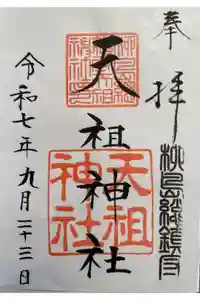 奉拝
柳島総鎮守
天祖神社
天祖
神社
令和七年九月二十三日